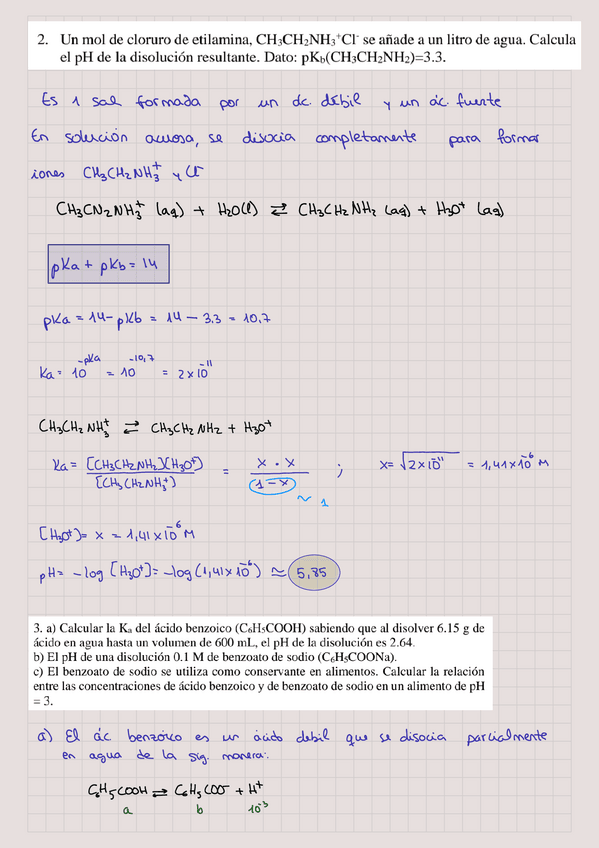 2. Un mol de cloruro de etilamina, CH₃CH₂NH₃⁺Cl⁻ se añade a un litro de agua. Calcula
el pH de la disolución resultante. Dato: pK_b(CH₃CH₂NH₂)=3.3.
Es 1 sal formada por un ác. débil y un ác. fuerte
En solución acuosa, se disocia completamente para formar
iones CH₃CH₂NH₃⁺ y Cl⁻
CH₃CN₂NH₃⁺ (aq) + H₂O(l) ⇄ CH₃CH₂NH₂ (aq) + H₃O⁺ (aq)
pKa + pKb = 14
pKa = 14 - pKb = 14 - 3.3 = 10,7
Ka = 10^-pKa = 10^-10,7 = 2x10^-11
CH₃CH₂NH₃⁺ ⇄ CH₃CH₂NH₂ + H₃O⁺
Ka = [CH₃CH₂NH₂][H₃O⁺] / [CH₃CH₂NH₃⁺] = x · x / 1-x ; x = √2x10^-11 = 1,41x10^-6 M
~ 1
[H₃O⁺] = x = 1,41x10^-6 M
pH = -log [H₃O⁺] = -log (1,41x10^-6) ≈ 5,85
3. a) Calcular la Kₐ del ácido benzoico (C₆H₅COOH) sabiendo que al disolver 6.15 g de
ácido en agua hasta un volumen de 600 mL, el pH de la disolución es 2.64.
b) El pH de una disolución 0.1 M de benzoato de sodio (C₆H₅COONa).
c) El benzoato de sodio se utiliza como conservante en alimentos. Calcular la relación
entre las concentraciones de ácido benzoico y de benzoato de sodio en un alimento de pH
= 3.
a) El ác benzoico es un ácido debil que se disocia parcialmente
en agua de la sig. manera:
C₆H₅COOH ⇄ C₆H₅COO⁻ + H⁺
a b 10^-3